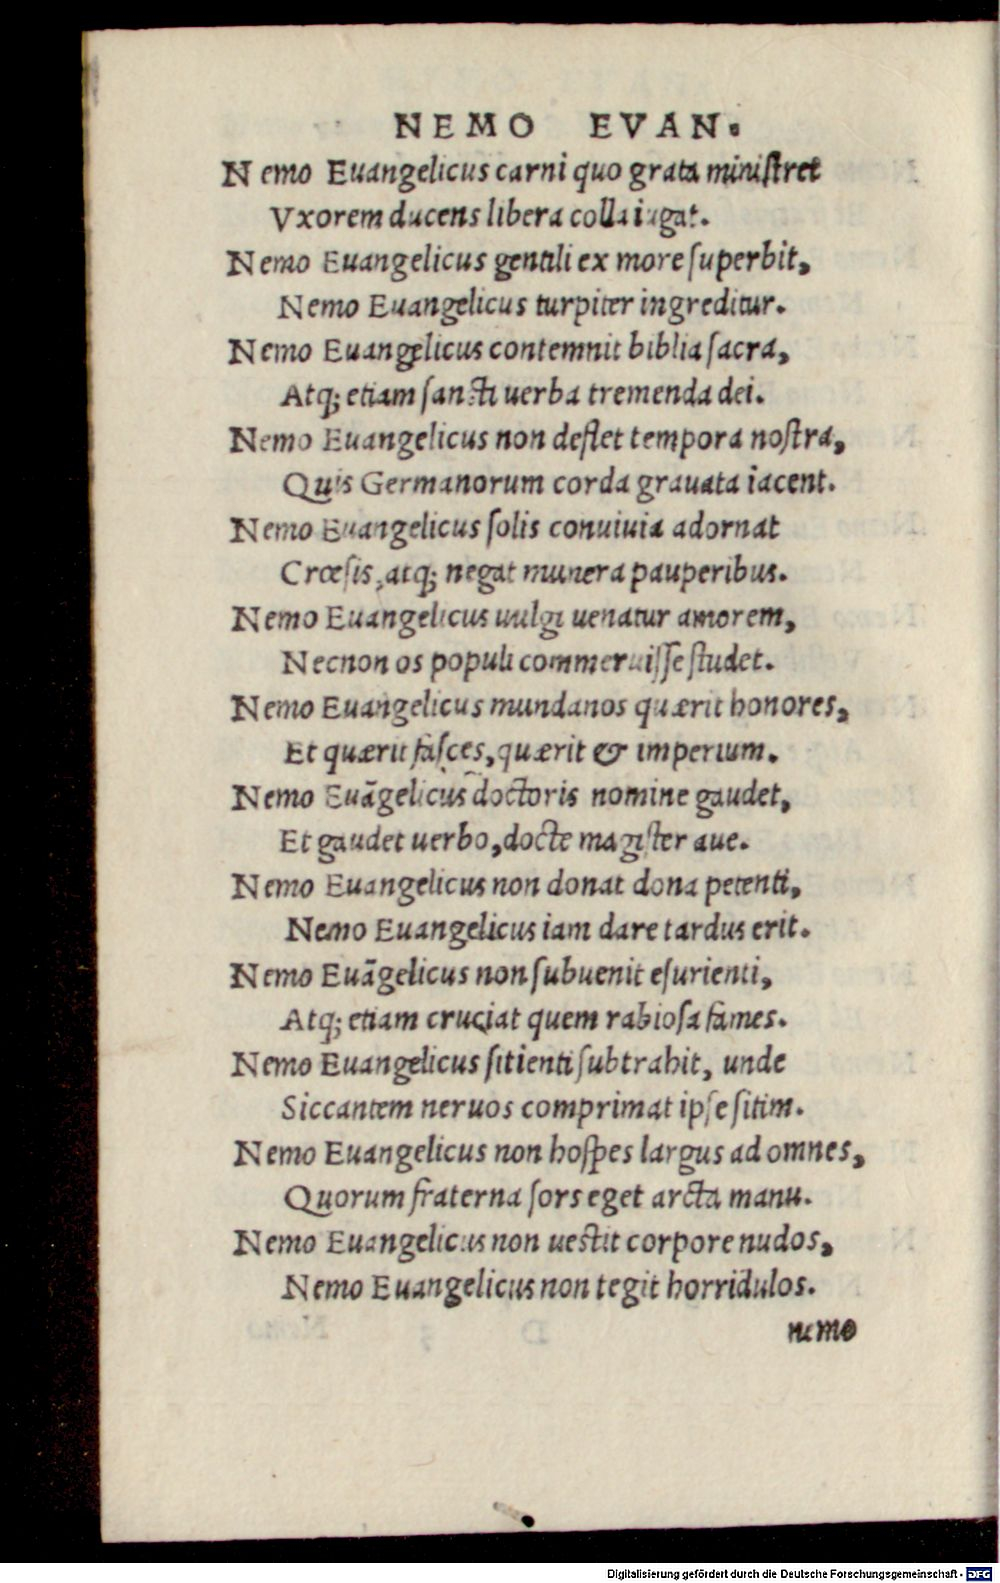 NEMO EVAN.
Nemo Euangelicus carni quo grata miniſtret
Vxorem ducens libera colla iugat.
Nemo Euangelicus gentili ex more ſuperbit,
Nemo Euangelicus turpiter ingreditur.
Nemo Euangelicus contemnit biblia ſacra,
Atq; etiam ſancti uerba tremenda dei.
Nemo Euangelicus non deflet tempora noſtra,
Quis Germanorum corda grauata iacent.
Nemo Euangelicus ſolis conuiuia adornat
Crœſis, atq; negat munera pauperibus.
Nemo Euangelicus uulgi uenatur amorem,
Necnon os populi commeruiſſe ſtudet.
Nemo Euangelicus mundanos quærit honores,
Et quærit faſces, quærit & imperium.
Nemo Euãgelicus doctoris nomine gaudet,
Et gaudet uerbo, docte magiſter aue.
Nemo Euangelicus non donat dona petenti,
Nemo Euangelicus iam dare tardus erit.
Nemo Euãgelicus non ſubuenit eſurienti,
Atq; etiam cruciat quem rabioſa fames.
Nemo Euangelicus ſitienti ſubtrahit, unde
Siccantem neruos comprimat ipſe ſitim.
Nemo Euangelicus non hoſpes largus ad omnes,
Quorum fraterna ſors eget arcta manu.
Nemo Euangelicus non ueſtit corpore nudos,
Nemo Euangelicus non tegit horridulos.
nemo
Digitalisierung gefördert durch die Deutsche Forschungsgemeinschaft - DFG